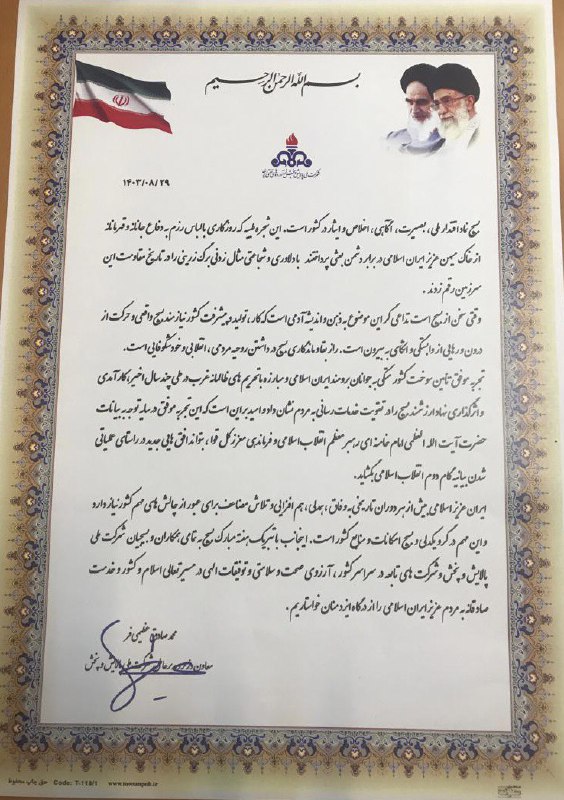 بسم الله الرحمن الرحیم
شرکت ملی پالایش و پخش فرآورده‌های نفتی ایران
۱۴۰۳/۰۸/۲۹
بسیج نماد اقتدار ملی، بصیرت، آگاهی، اخلاص و ایثار در کشور است. این شجره طیبه که روزگاری با لباس رزم به دفاع جانانه و قهرمانانه
از خاک میهن عزیز ایران اسلامی در برابر دشمن بعثی پرداختند با دلاوری و شجاعتی مثال زدنی برگ زرینی را در تاریخ مقاومت این
سرزمین رقم زدند.
وقتی سخن از بسیج است تداعی گر این موضوع به ذهن و اندیشه آدمی است که کار، تولید و پیشرفت کشور نیازمند بسیج واقعی و حرکت از
درون و رهایی از وابستگی و اتکای به بیرون است. راز بقا و ماندگاری بسیج در داشتن روحیه مردمی، انقلابی و خودشکوفایی است.
تجربه موفق تأمین سوخت کشور متکی به جوانان برومند ایران اسلامی و مبارزه با تحریم های ظالمانه غرب در طی چند سال اخیر، کارآمدی
و اثرگذاری نهاد ارزشمند بسیج را در تقویت خدمات رسانی به مردم نشان داد و امید بر این است که این تجربه موفق در سایه توجه به بیانات
حضرت آیت الله العظمی امام خامنه ای رهبر معظم انقلاب اسلامی و فرماندهی معزز کل قوا، بتواند افق هایی جدید در راستای عملیاتی
شدن بیانیه گام دوم انقلاب اسلامی بگشاید.
ایران عزیز اسلامی بیش از هر دوران تاریخی به وفاق، همدلی، هم افزایی و تلاش مضاعف برای عبور از چالش های مهم کشور نیاز دارد
و این مهم در گرو یکدلی و بسیج امکانات و منابع کشور است. اینجانب با تبریک هفته مبارک بسیج به تمامی همکاران و بسیجیان شرکت ملی
پالایش و پخش و شرکت های تابعه در سراسر کشور، آرزوی صحت و سلامتی و توفیقات الهی در مسیر تعالی اسلام و کشور و خدمت
صادقانه به مردم عزیز ایران اسلامی را از درگاه ایزد منان خواستاریم.
محمد صادق عظیمی فر
معاون وزیر و مدیرعامل شرکت ملی پالایش و پخش
حق چاپ محفوظ Code: T-118/1 www.moeenpub.ir